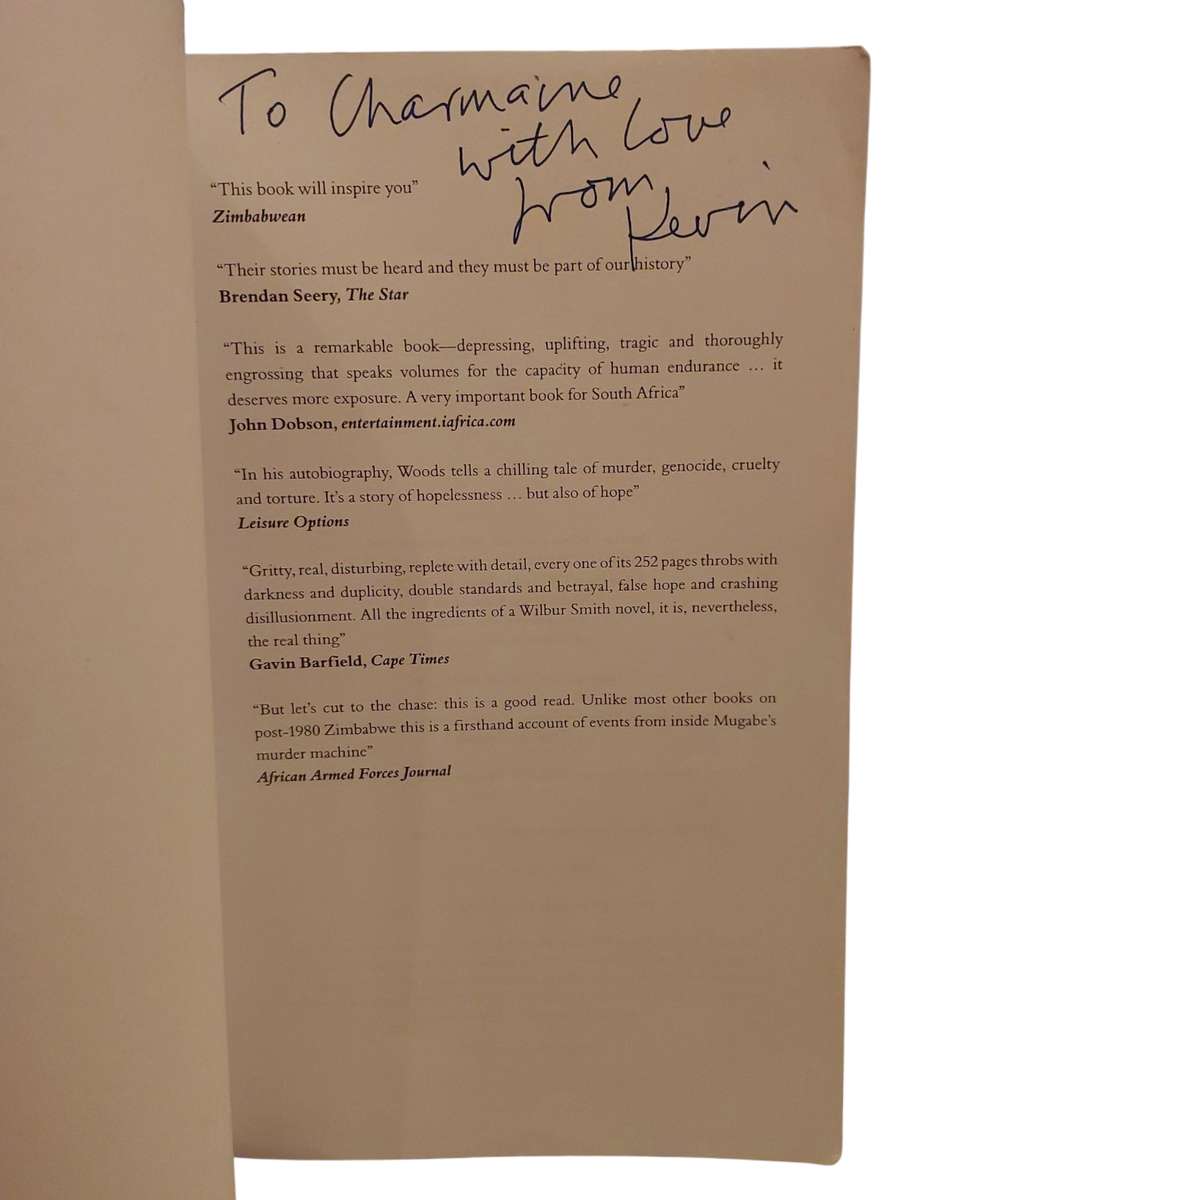 To Charmaine
with love
from
Kevin
“This book will inspire you”
Zimbabwean
“Their stories must be heard and they must be part of our history”
Brendan Seery, The Star
“This is a remarkable book—depressing, uplifting, tragic and thoroughly
engrossing that speaks volumes for the capacity of human endurance … it
deserves more exposure. A very important book for South Africa”
John Dobson, entertainment.iafrica.com
“In his autobiography, Woods tells a chilling tale of murder, genocide, cruelty
and torture. It’s a story of hopelessness … but also of hope”
Leisure Options
“Gritty, real, disturbing, replete with detail, every one of its 252 pages throbs with
darkness and duplicity, double standards and betrayal, false hope and crashing
disillusionment. All the ingredients of a Wilbur Smith novel, it is, nevertheless,
the real thing”
Gavin Barfield, Cape Times
“But let’s cut to the chase: this is a good read. Unlike most other books on
post-1980 Zimbabwe this is a firsthand account of events from inside Mugabe’s
murder machine”
African Armed Forces Journal